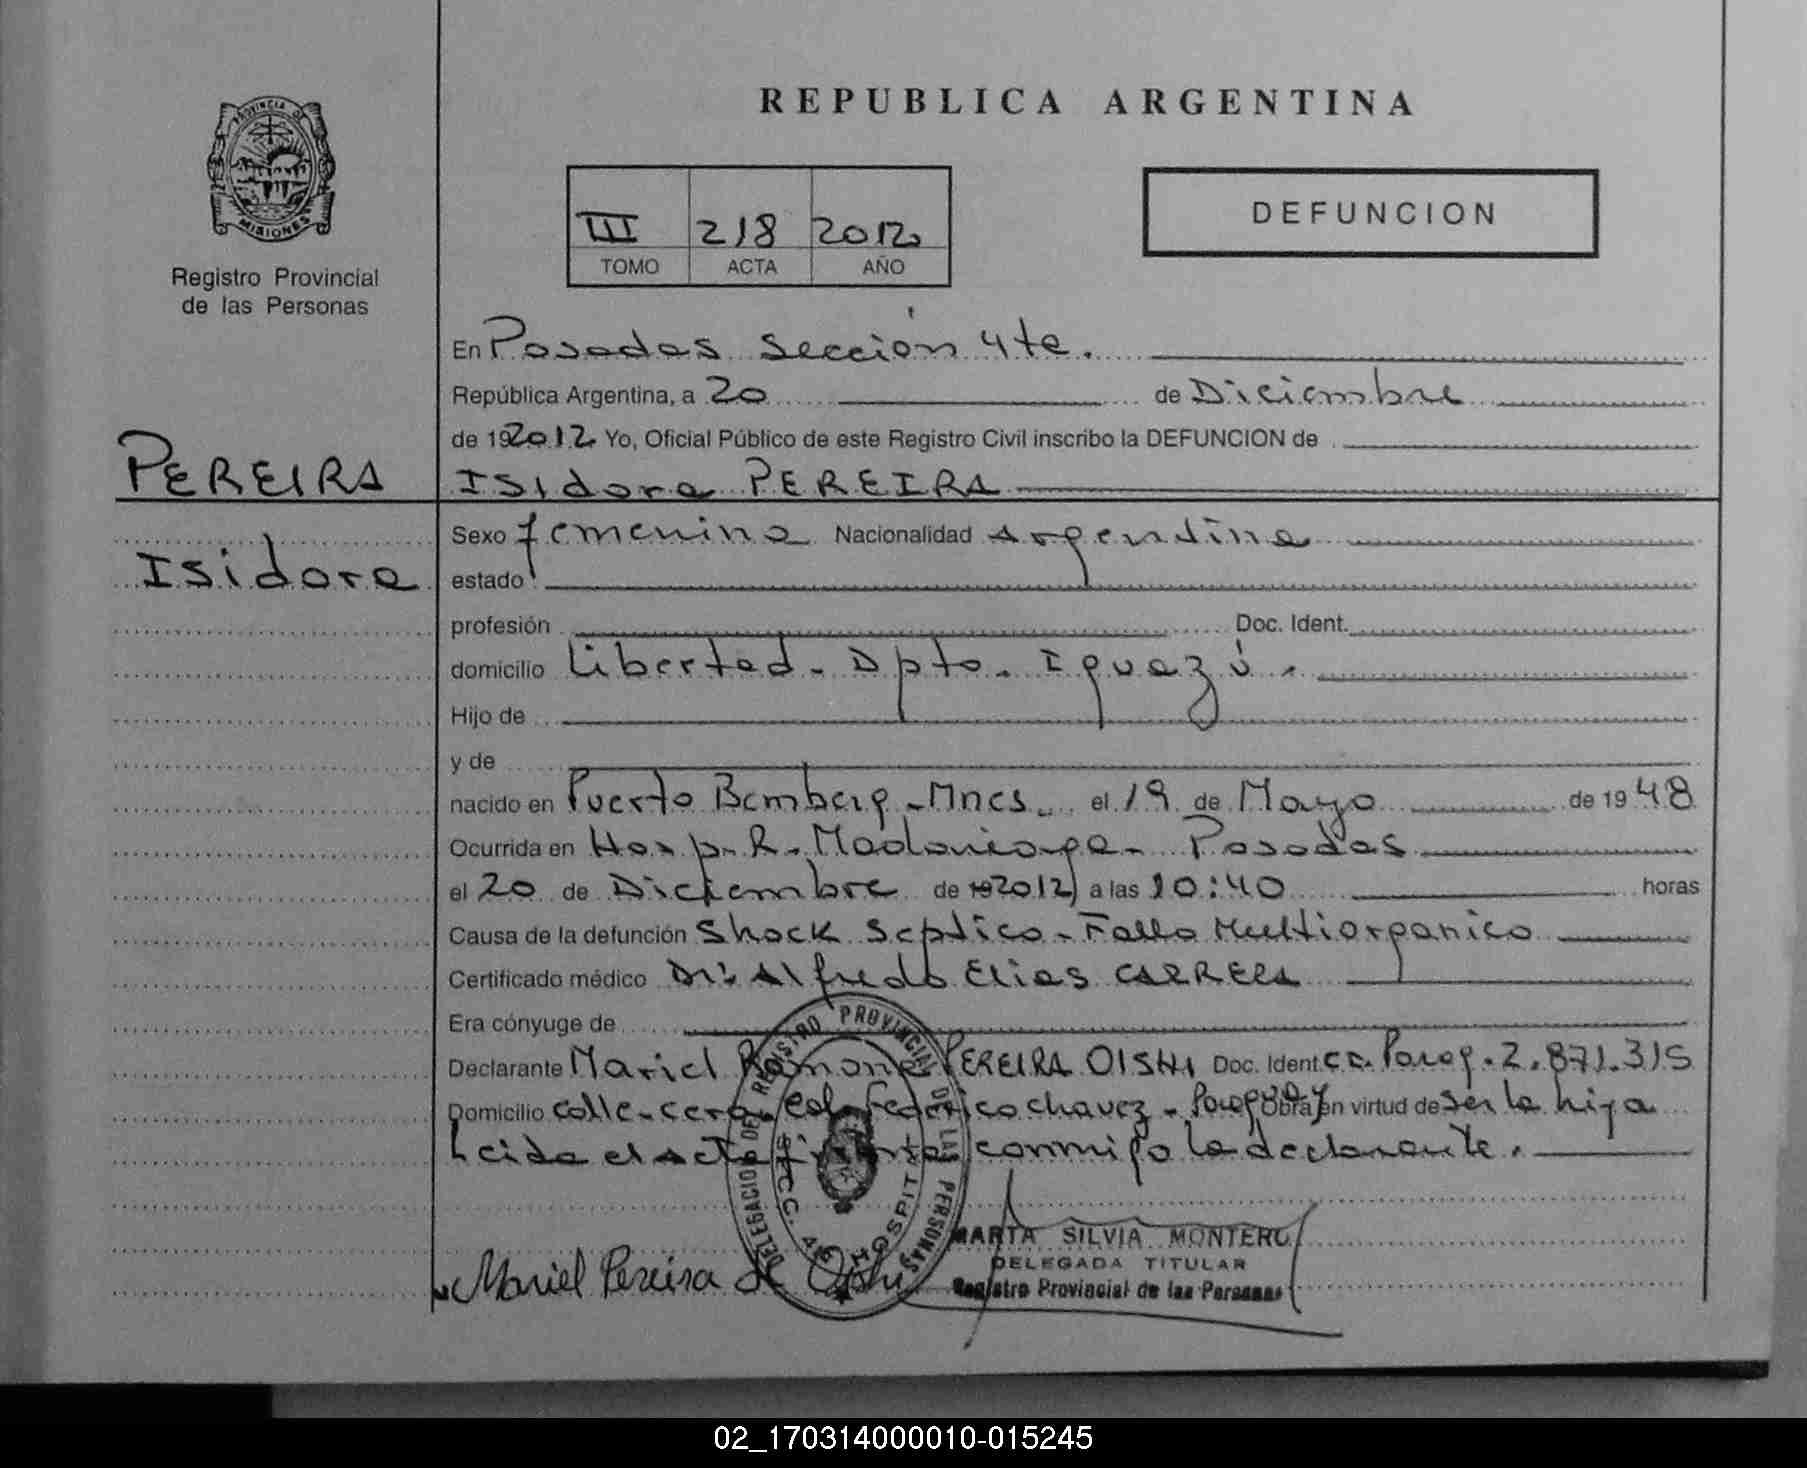 PROVINCIA DE
MISIONES
Registro Provincial
de las Personas
REPUBLICA ARGENTINA
III 218 2012
TOMO ACTA AÑO
DEFUNCION
En Posadas Sección 4ta.
República Argentina, a 20 de Diciembre
de 192012 Yo, Oficial Público de este Registro Civil inscribo la DEFUNCION de
PEREIRA
Isidora PEREIRA
Isidora
Sexo femenina Nacionalidad Argentina
estado
profesión Doc. Ident.
domicilio Libertad - Dpto. Iguazú.
Hijo de
y de
nacido en Puerto Bemberg - Mnes. el 19 de Mayo de 1948
Ocurrida en Hosp. R. Madariaga - Posadas
el 20 de Diciembre de 192012 a las 10:40 horas
Causa de la defunción Shock Septico - Fallo Multiorganico
Certificado médico Dr: Alfredo Elias CARRERA
Era cónyuge de
Declarante Mariel Ramona PEREIRA OISHI Doc. Ident. C.C. Parag. 2.871.315
Domicilio calle - cero, Col. Federico Chavez - Paraguay Obra en virtud de ser la hija
Leida el acta firma conmigo la declarante.
DELEGACION DEL REGISTRO PROVINCIAL DE LAS PERSONAS
SECC. 4ta HOSPIT
MARTA SILVIA MONTERO
DELEGADA TITULAR
Registro Provincial de las Personas
Mariel Pereira de Oishi
02_170314000010-015245